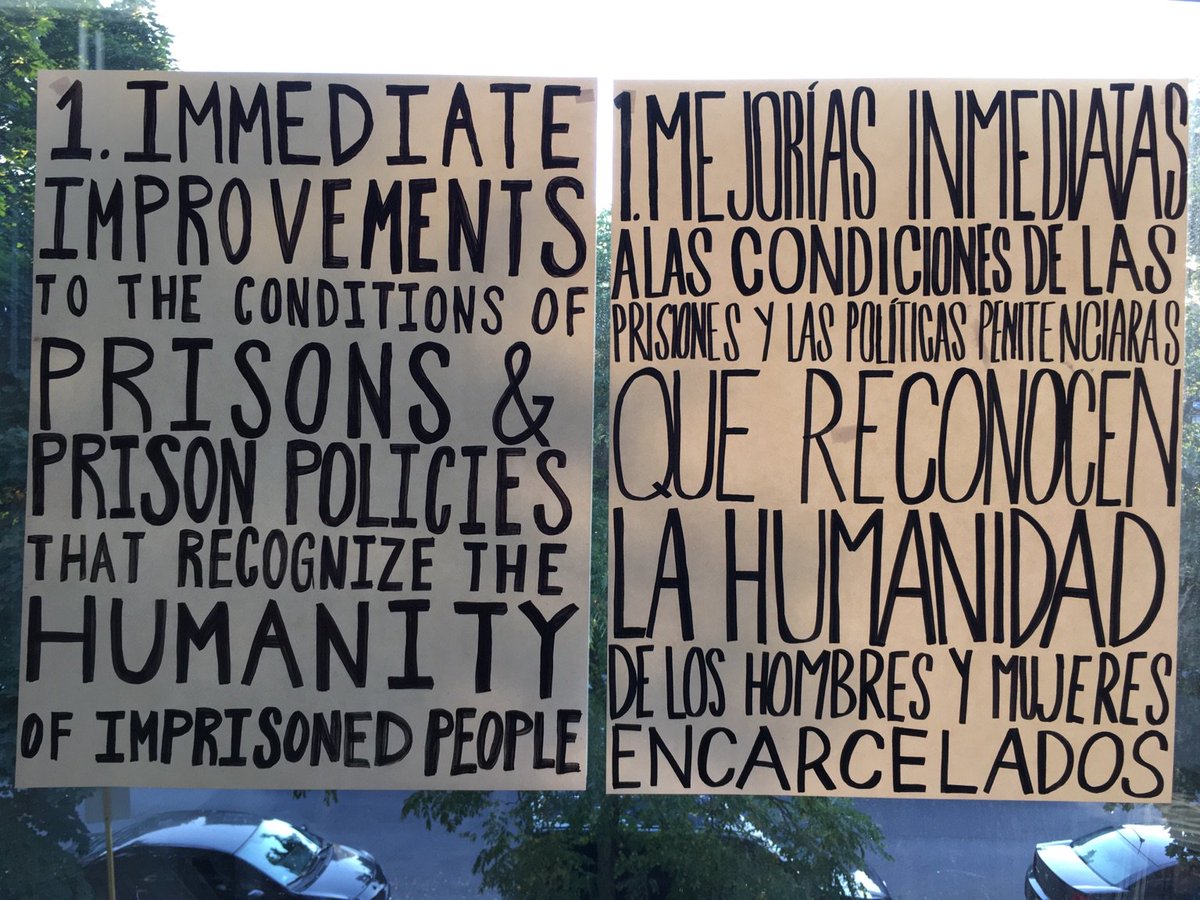 1. IMMEDIATE
IMPROVEMENTS
TO THE CONDITIONS OF
PRISONS &
PRISON POLICIES
THAT RECOGNIZE THE
HUMANITY
OF IMPRISONED PEOPLE
1. MEJORÍAS INMEDIATAS
A LAS CONDICIONES DE LAS
PRISIONES Y LAS POLÍTICAS PENITENCIARAS
QUE RECONOCEN
LA HUMANIDAD
DE LOS HOMBRES Y MUJERES
ENCARCELADOS